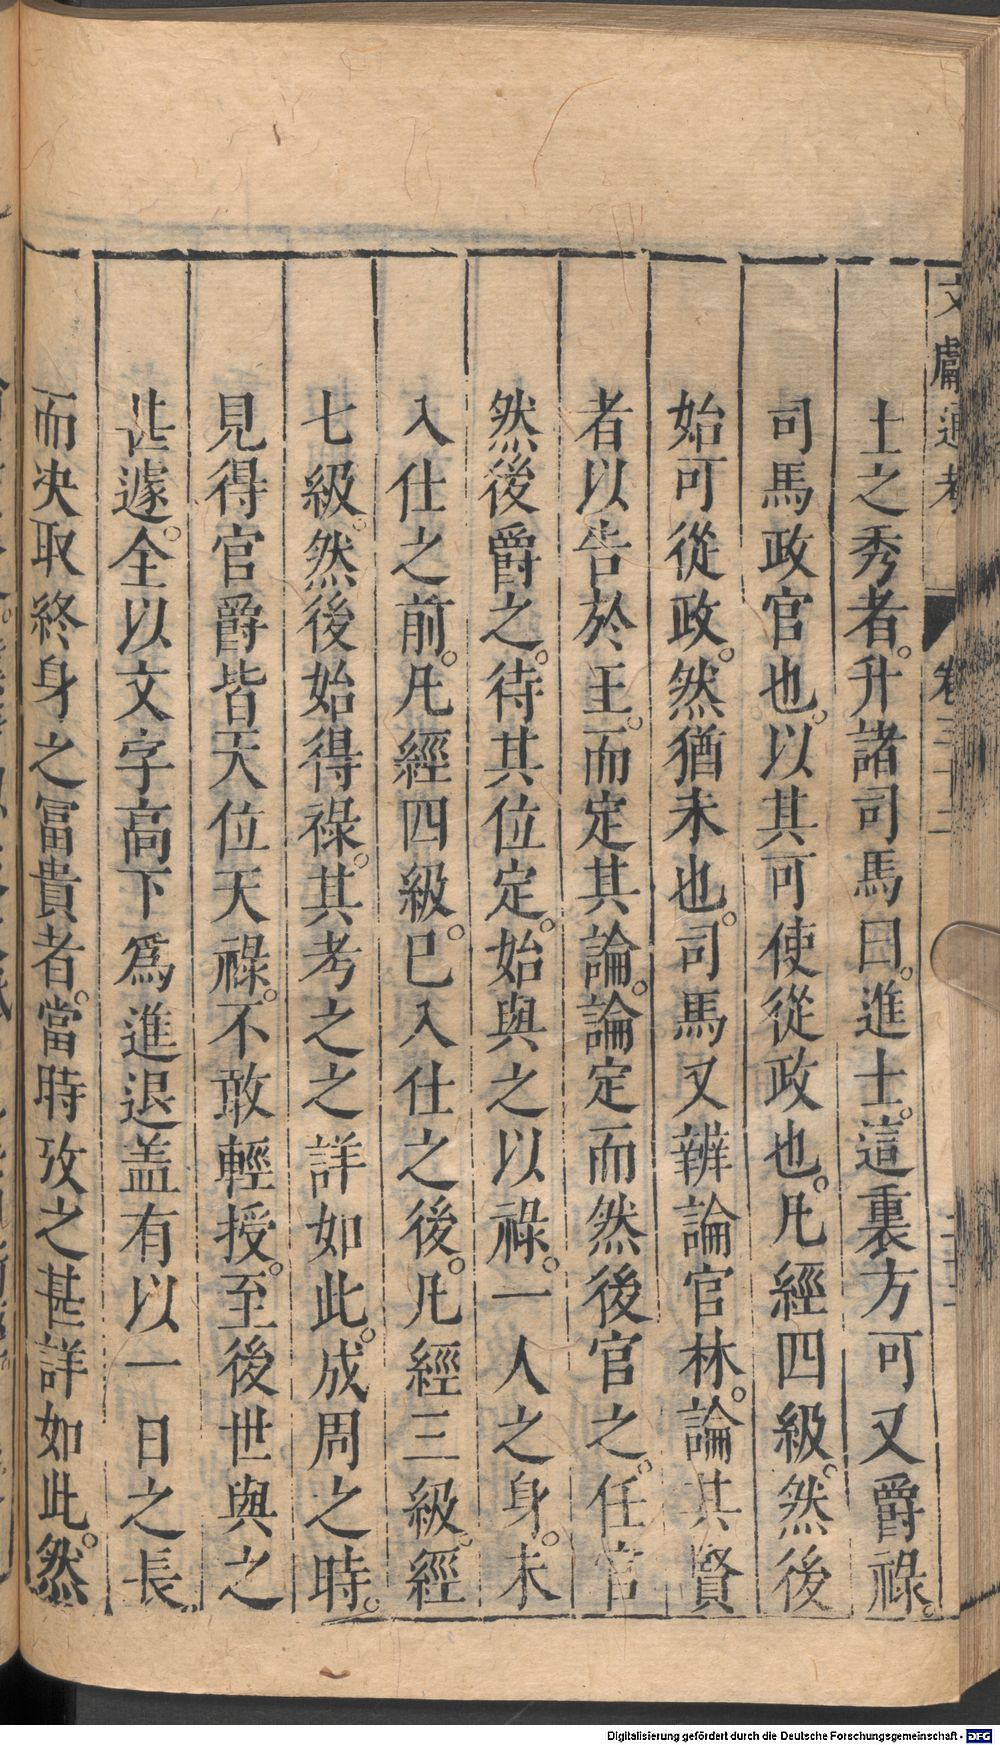 文獻通考 卷三十二
士之秀者。升諸司馬曰。進士。這裏方可又爵祿。
司馬政官也。以其可使從政也。凡經四級。然後
始可從政。然猶未也。司馬又辨論官林。論其賢
者以告於王。而定其論。論定而然後官之。任官
然後爵之。待其位定。始與之以祿。一人之身。未
入仕之前。凡經四級。已入仕之後。凡經三級。經
七級。然後始得祿。其考之之詳如此。成周之時。
見得官爵皆天位天祿。不敢輕授。至後世與之
甚遽。全以文字高下爲進退盖有以一日之長
而决取終身之冨貴者。當時攷之甚詳如此。然
Digitalisierung gefördert durch die Deutsche Forschungsgemeinschaft - DFG